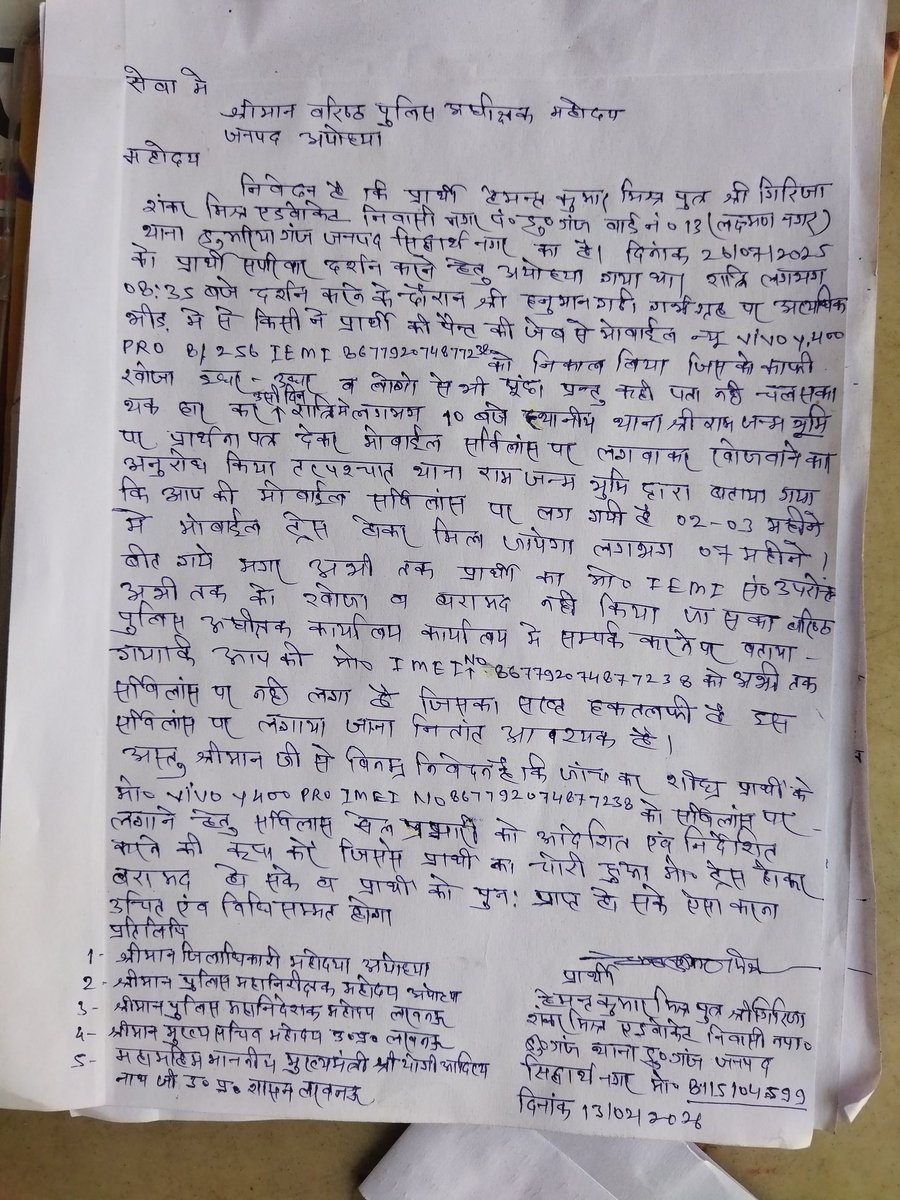 सेवा मे
श्रीमान वरिष्ठ पुलिस अधीक्षक महोदय
जनपद अयोध्या
महोदय
निवेदन है कि प्रार्थी हेमन्त कुमार मिश्र पुत्र श्री गिरिजा
शंकर मिश्र एडवोकेट निवासी नगर पं० डु० गंज वार्ड नं० 13 (लक्ष्मण नगर)
थाना डुमरिया गंज जनपद सिद्धार्थ नगर का है। दिनांक 26/07/2025
को प्रार्थी सपरिवार दर्शन करने हेतु अयोध्या गया था। रात्रि लगभग
08:35 बजे दर्शन करने के दौरान श्री हनुमान गढ़ी गर्भगृह पर अत्यधिक
भीड़ मे से किसी ने प्रार्थी की पैन्ट की जेब से मोबाईल न्यू VIVO Y400
PRO 8/256 IEMI 867792074877238 को निकाल लिया जिसको काफी
खोजा इधर-उधर व लोगो से भी पूंछा परन्तु कही पता नही चल सका
थक हार कर उसी दिन रात्रि मे लगभग 10 बजे स्थानीय थाना श्री राम जन्म भूमि
पर प्रार्थना पत्र देकर मोबाईल सर्विलांस पर लगवाकर खोजवाने का
अनुरोध किया तत्पश्चात थाना राम जन्म भुमि द्वारा बताया गया
कि आप की मोबाईल सर्विलांस पर लग गयी है 02-03 महीने
मे मोबाईल ट्रेस होकर मिल जायेगा लगभग 07 महीने।
बीत गये मगर अभी तक प्रार्थी का मो० IEMI सं० उपरोक्त
अभी तक को खोजा व बरामद नही किया जा सका वरिष्ठ
पुलिस अधीक्षक कार्यालय कार्यालय मे सम्पर्क करने पर बताया-
गया कि आप की मो० IMEI NO 867792074877238 को अभी तक
सर्विलांस पर नही लगा है जिसका सरह हकतलफी है इस
सर्विलांस पर लगाया जाना नितांत आवश्यक है।
अस्तु श्रीमान जी से विनम्र निवेदन है कि जांच कर शीघ्र प्रार्थी के
मो० VIVO Y400 PRO IMEI NO 867792074877238 को सर्विलांस पर-
लगाने हेतु सर्विलांस सेल प्रभारी को आदेशित एवं निर्देशित
करने की कृपा करें जिससे प्रार्थी का चोरी हुआ मो० ट्रेस होकर
बरामद हो सके व प्रार्थी को पुनः प्राप्त हो सके ऐसा करना
उचित एंव विधि सम्मत होगा
प्रतिलिपि
1- श्रीमान जिलाधिकारी महोदया अयोध्या
2- श्रीमान पुलिस महानिरीक्षक महोदय अयोध्या
3- श्रीमान पुलिस महानिदेशक महोदय लखनऊ
4- श्रीमान मुख्य सचिव महोदय उ०प्र० लखनऊ
5- महामहिम माननीय मुख्यमंत्री श्री योगी आदित्य
नाथ जी उ० प्र० शासन लखनऊ
प्रार्थी
हेमन्त कुमार मिश्र पुत्र श्री गिरिजा
शंकर मिश्र एडवोकेट निवासी नपा०
डु० गंज थाना डु० गंज जनपद
सिद्धार्थ नगर मो०
दिनांक 13/02/2026